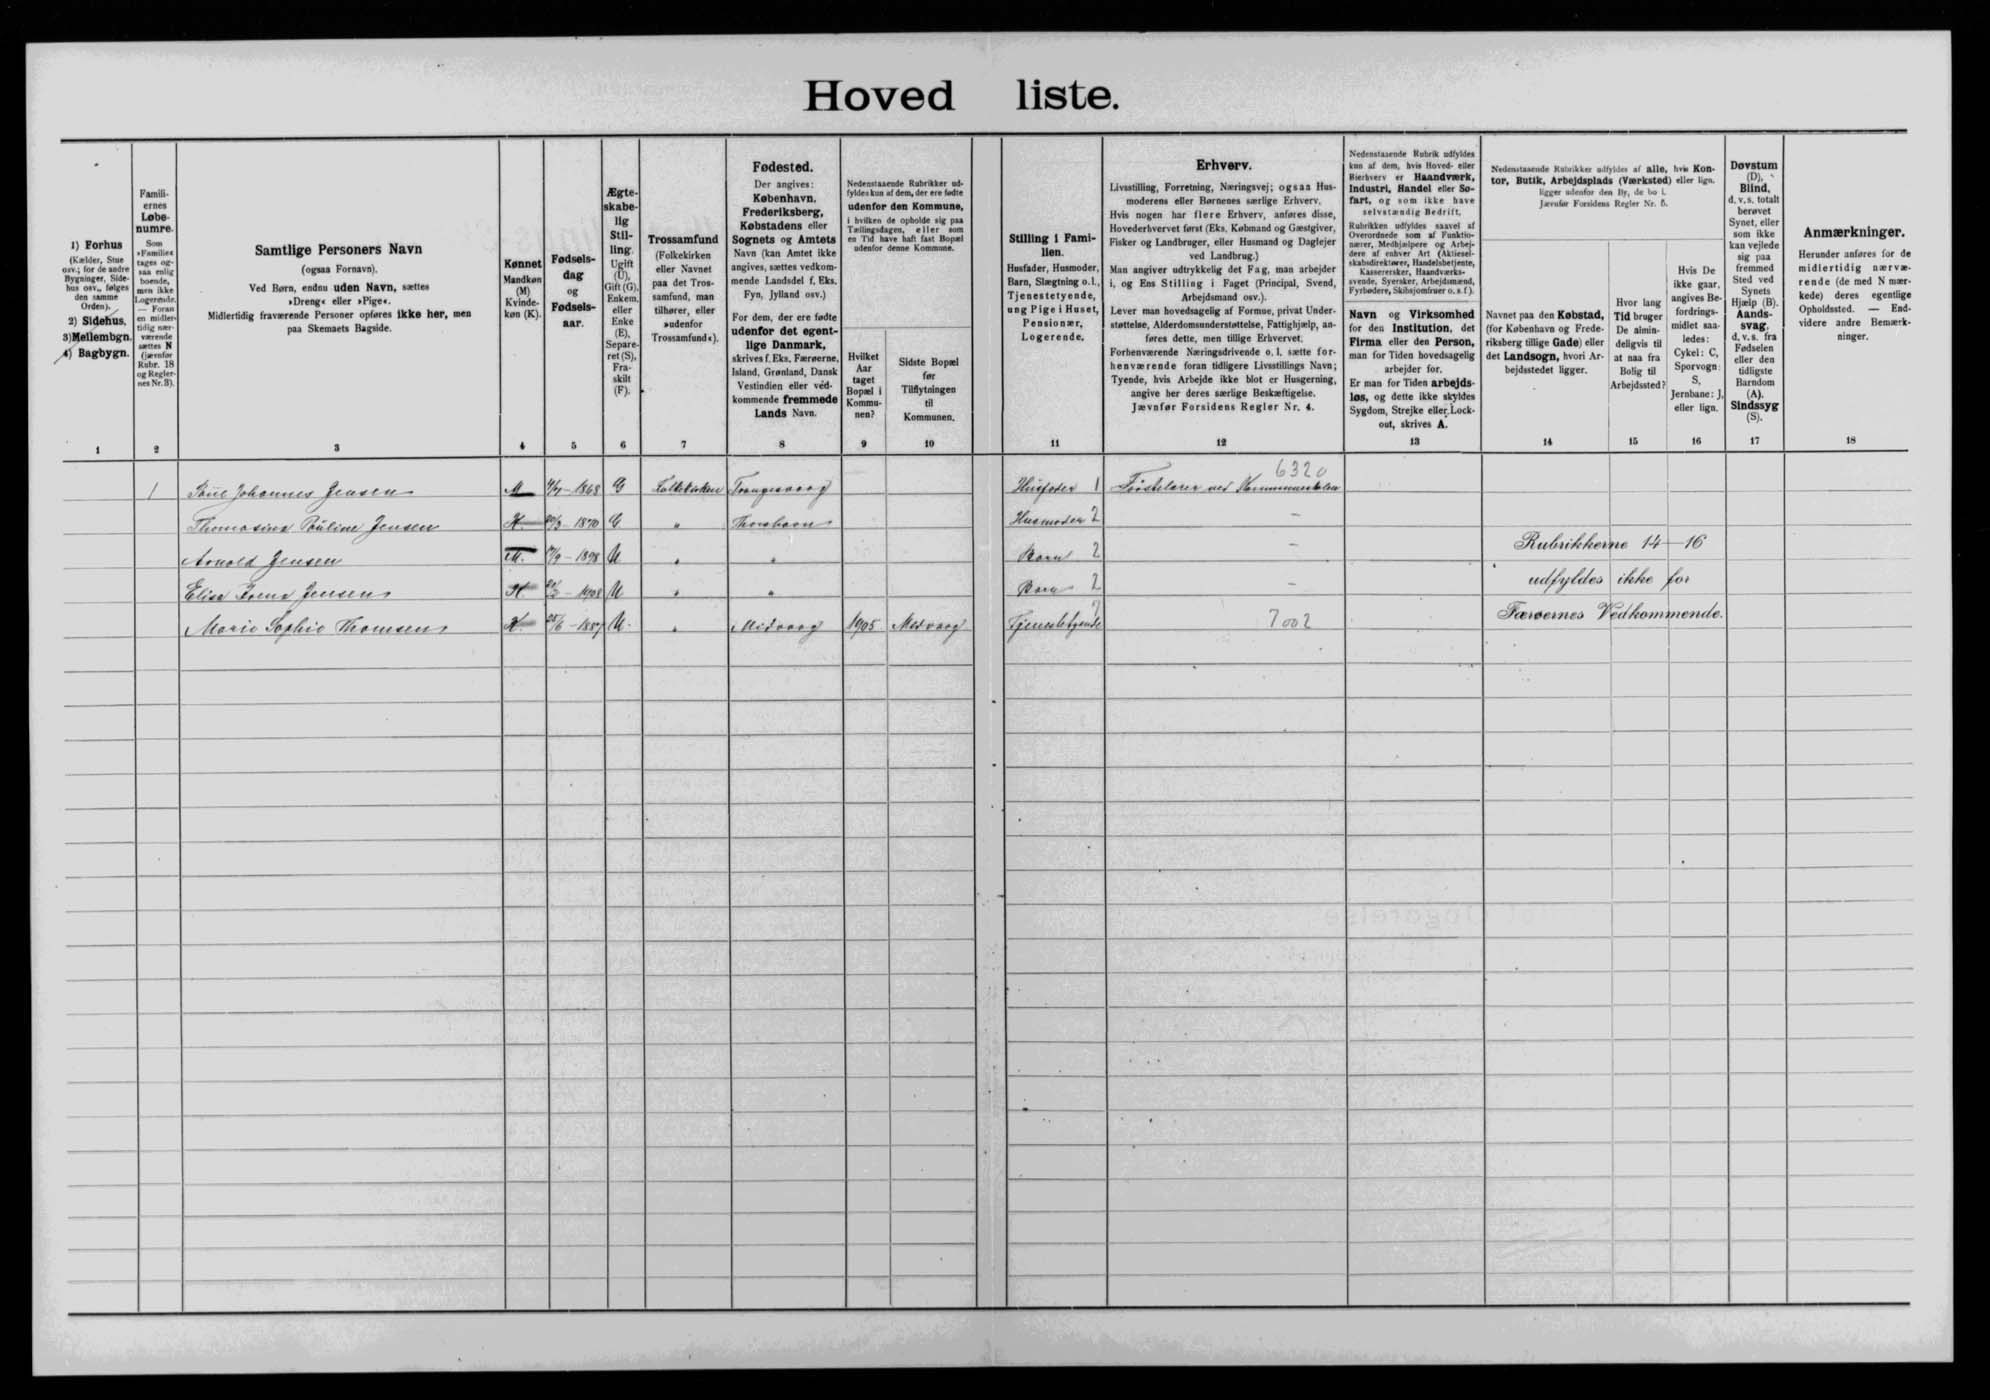 Hoved liste.
1) Forhus
(Kælder, Stue
osv.; for de andre
Bygninger, Side-
hus osv., følges
den samme
Orden).
2) Sidehus,
3) Mellembgn.
4) Bagbygn.
Famili-
ernes
Løbe-
numre.
Som
»Familie«
tages og-
saa enlig
boende,
men ikke
Logerende.
— Foran
en midler-
tidig nær-
værende
sættes N
(jævnfør
Rubr. 18
og Regler-
nes Nr. 3).
Samtlige Personers Navn
(ogsaa Fornavn).
Ved Børn, endnu uden Navn, sættes
»Dreng« eller »Pige«.
Midlertidig fraværende Personer opføres ikke her, men
paa Skemaets Bagside.
Kønnet
Mandkøn
(M)
Kvinde-
køn (K).
Fødsels-
dag
og
Fødsels-
aar.
Ægte-
skabe-
lig
Stil-
ling.
Ugift
(U),
Gift (G),
Enkem.
eller
Enke
(E),
Separe-
ret (S),
Fra-
skilt
(F).
Trossamfund
(Folkekirken
eller Navnet
paa det Tros-
samfund, man
tilhører, eller
»udenfor
Trossamfund«).
Fødested.
Der angives:
København,
Frederiksberg,
Købstadens eller
Sognets og Amtets
Navn (kan Amtet ikke
angives, sættes vedkom-
mende Landsdel f. Eks.
Fyn, Jylland osv.)
For dem, der ere fødte
udenfor det egent-
lige Danmark,
skrives f. Eks. Færøerne,
Island, Grønland, Dansk
Vestindien eller ved-
kommende fremmede
Lands Navn.
Nedenstaaende Rubrikker ud-
fyldes kun af dem, der ere fødte
udenfor den Kommune,
i hvilken de opholde sig paa
Tællingsdagen, eller som
en Tid have haft fast Bopæl
udenfor denne Kommune.
Hvilket
Aar
taget
Bopæl i
Kommu-
nen?
Sidste Bopæl
før
Tilflytningen
til
Kommunen.
Stilling i Fami-
lien.
Husfader, Husmoder,
Barn, Slægtning o.l.,
Tjenestetyende,
ung Pige i Huset,
Pensionær,
Logerende.
Erhverv.
Livsstilling, Forretning, Næringsvej; ogsaa Hus-
moderens eller Børnenes særlige Erhverv.
Hvis nogen har flere Erhverv, anføres disse,
Hovederhvervet først (Eks. Købmand og Gæstgiver,
Fisker og Landbruger, eller Husmand og Daglejer
ved Landbrug.)
Man angiver udtrykkelig det Fag, man arbejder
i, og Ens Stilling i Faget (Principal, Svend,
Arbejdsmand osv.).
Lever man hovedsagelig af Formue, privat Under-
støttelse, Alderdomsunderstøttelse, Fattighjælp, an-
føres dette, men tillige Erhvervet.
Forhenværende Næringsdrivende o. l. sætte for-
henværende foran tidligere Livsstillings Navn;
Tyende, hvis Arbejde ikke blot er Husgerning,
angive her deres særlige Beskæftigelse.
Jævnfør Forsidens Regler Nr. 4.
Nedenstaaende Rubrik udfyldes
kun af dem, hvis Hoved- eller
Bierhverv er Haandværk,
Industri, Handel eller Sø-
fart, og som ikke have
selvstændig Bedrift.
Rubrikken udfyldes saavel af
Overordnede som af Funktio-
nærer, Medhjælpere og Arbej-
dere af enhver Art (Aktiesel-
skabsdirektører, Handelsbetjente,
Kassererersker, Haandværks-
svende, Syersker, Arbejdsmænd,
Fyrbødere, Skibsjomfruer o. s. f.).
Navn og Virksomhed
for den Institution, det
Firma eller den Person,
man for Tiden hovedsagelig
arbejder for.
Er man for Tiden arbejds-
løs, og dette ikke skyldes
Sygdom, Strejke eller Lock-
out, skrives A.
Nedenstaaende Rubrikker udfyldes af alle, hvis Kon-
tor, Butik, Arbejdsplads (Værksted) eller lign.
ligger udenfor den By, de bo i.
Jævnfør Forsidens Regler Nr. 5.
Navnet paa den Købstad,
(for København og Frede-
riksberg tillige Gade) eller
det Landsogn, hvori Ar-
bejdsstedet ligger.
Hvor lang
Tid bruger
De almin-
deligvis til
at naa fra
Bolig til
Arbejdssted?
Hvis De
ikke gaar,
angives Be-
fordrings-
midlet saa-
ledes:
Cykel: C,
Sporvogn:
S,
Jernbane: J,
eller lign.
Døvstum
(D),
Blind,
d. v. s. totalt
berøvet
Synet, eller
som ikke
kan vejlede
sig paa
fremmed
Sted ved
Synets
Hjælp (B).
Aands-
svag,
d. v. s. fra
Fødselen
eller den
tidligste
Barndom
(A).
Sindssyg
(S).
Anmærkninger.
Herunder anføres for de
midlertidig nærvæ-
rende (de med N mær-
kede) deres egentlige
Opholdssted. — End-
videre andre Bemærk-
ninger.
1 2 3 4 5 6 7 8 9 10 11 12 13 14 15 16 17 18
6320
1 Johannes Jensen M 1868 G Folkekirken Trangisvaag Husfader 1 Førstelærer ved Kommuneskolen
Thomasine Pouline Jensen K 1870 G " Thorshavn Husmoder 2 —
Arnold Jensen M. 1898 U " " Barn 2 — Rubrikkerne 14—16
Jensen K 1908 U " " Barn 2 — udfyldes ikke for
Marie Sophie Thomsen K. 25/6 — 1887 U. " Midvaag 1905 Midvaag Tjenestetyende 7 7002 Færøernes Vedkommende.